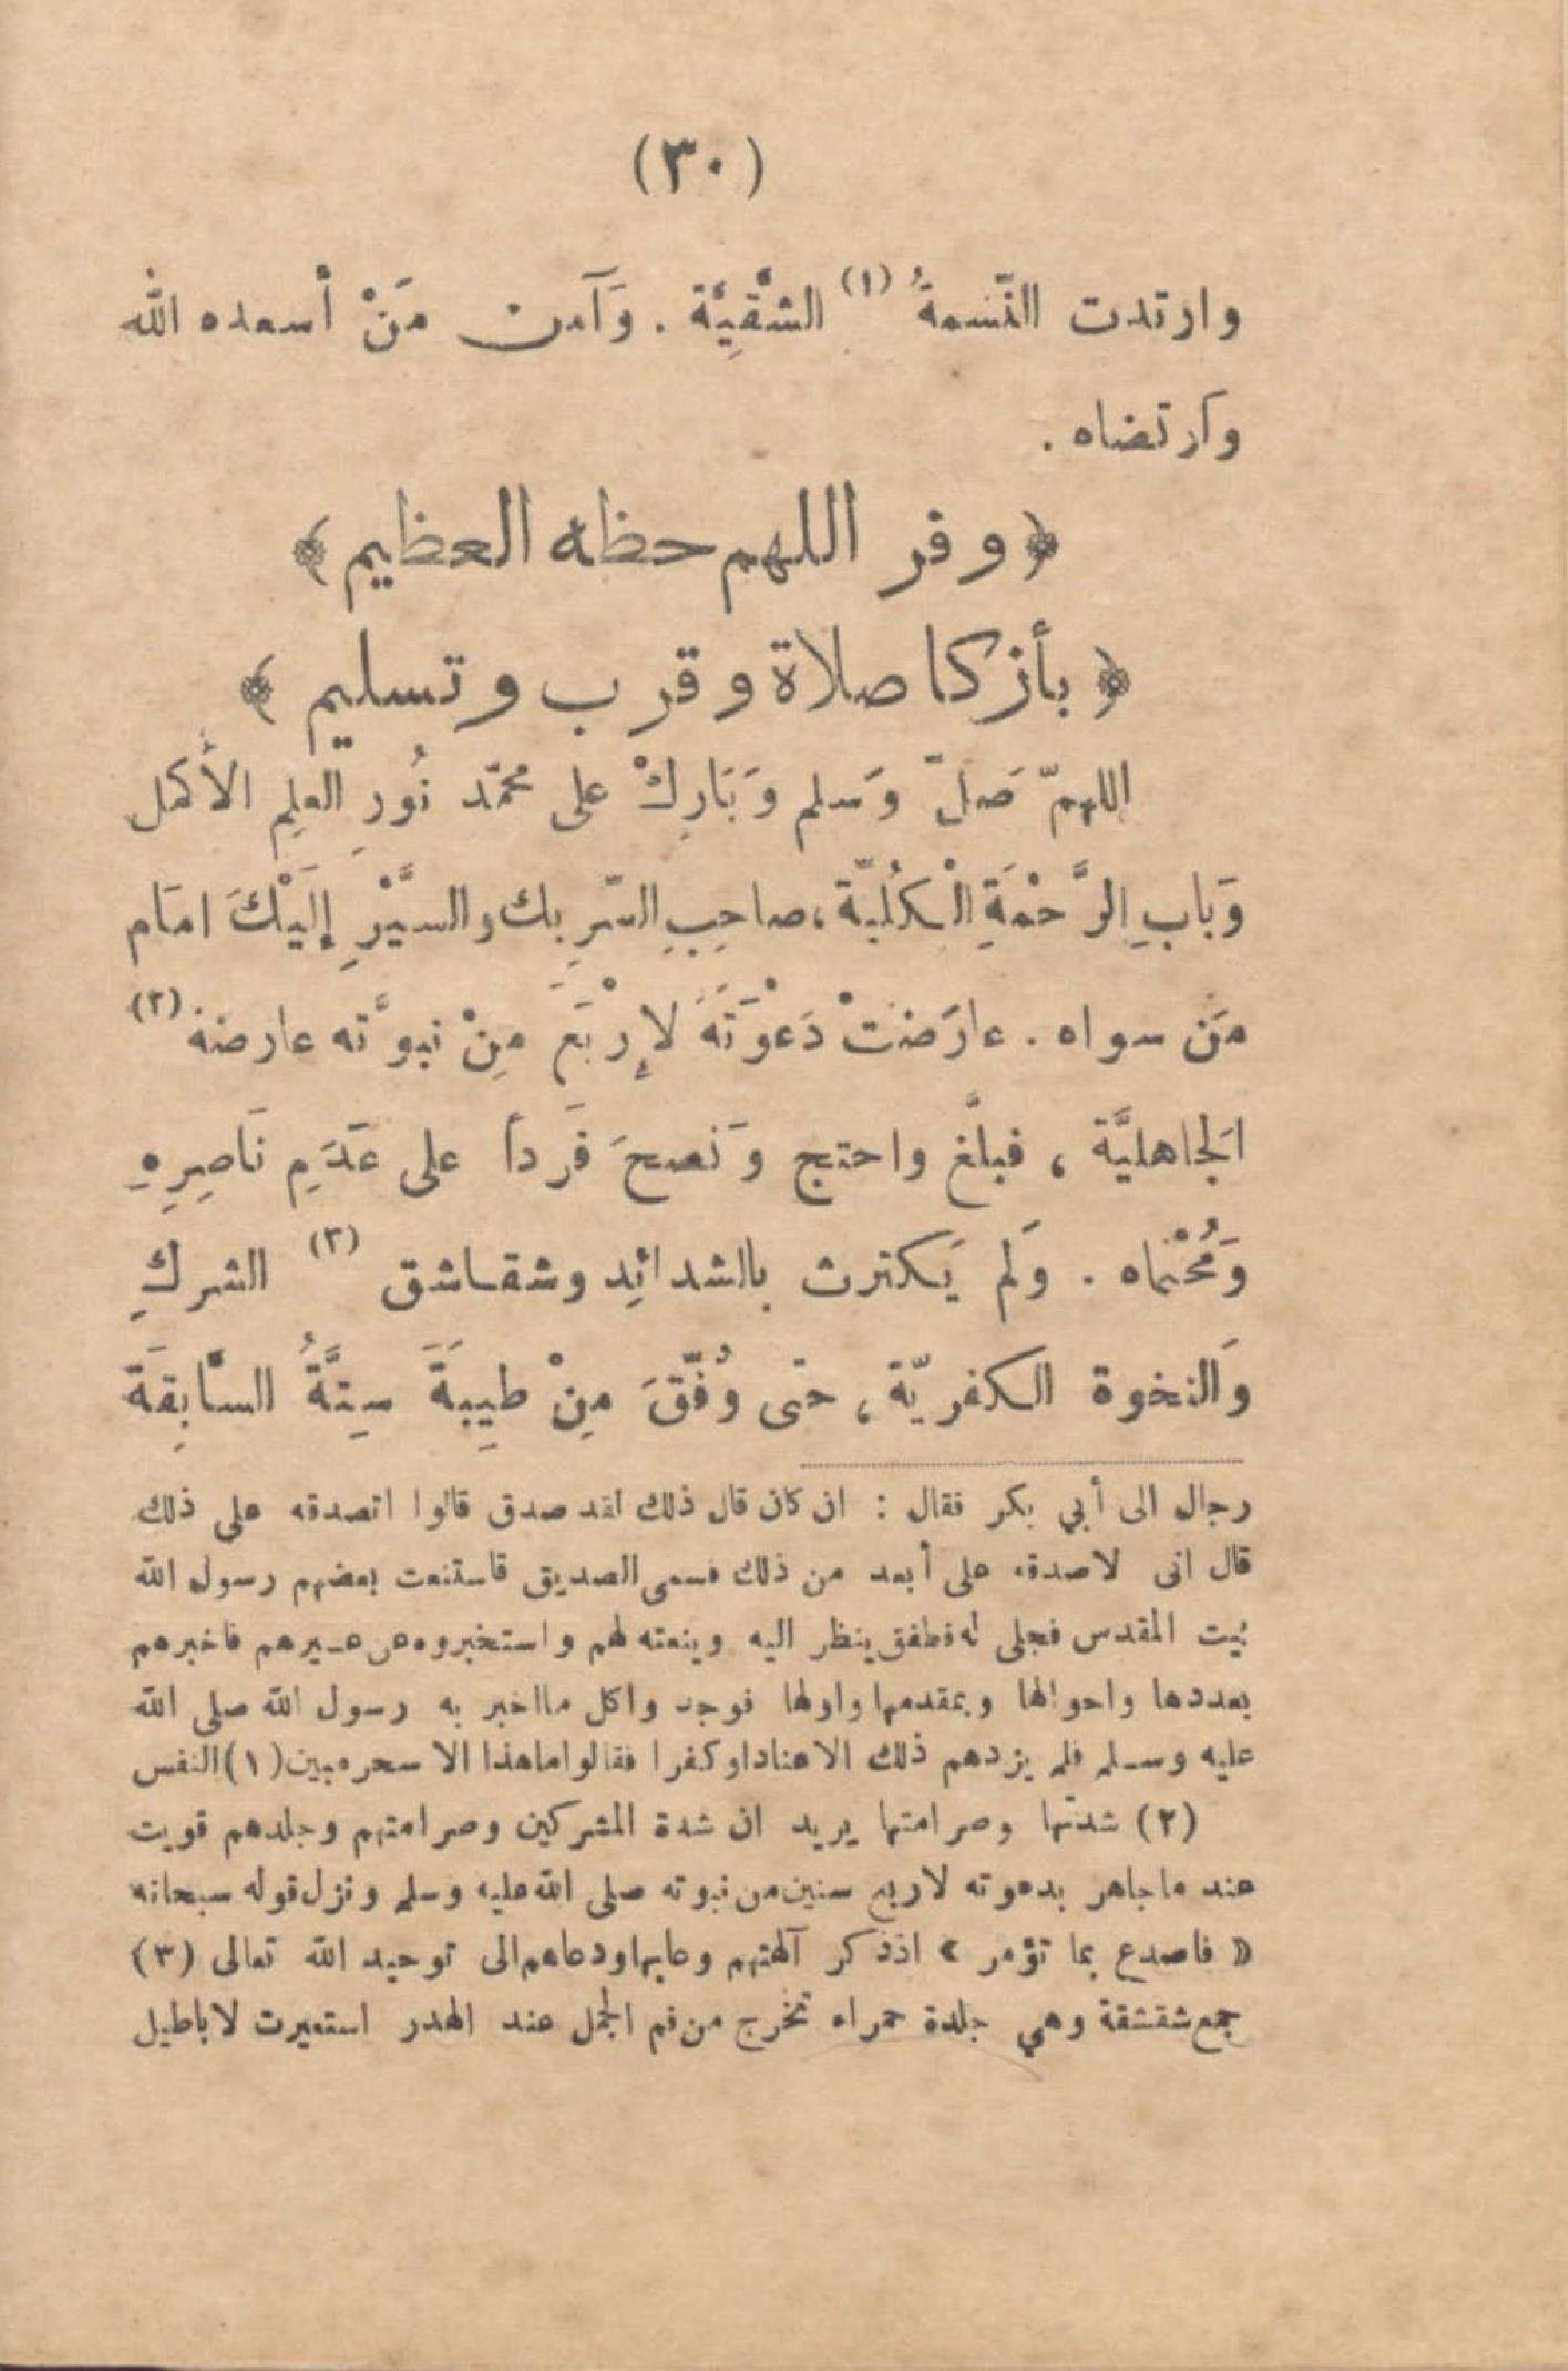 (٣٠)
وارتدت النّسمةُ (١) الشّقيِّة . وَآمن مَنْ أسعده الله
وَارتضاه .
﴿ وفر اللهم حظه العظيم ﴾
﴿ بأزكا صلاة وقرب وتسليم ﴾
اللهمّ صَلّ وَسلم وَبَارِكْ على محمّد نُورِ العلِم الأكمل
وَبابِ الرَّحْمَةِ الْكُلّيَّة ، صاحِبِ السّرِ بك والسيَّرِ إلَيْكَ امَام
مَن سواه . عارَضَتْ دَعْوَتَهُ لإِرْبَعَ مِنْ نبوَّته عارضة (٢)
اَلجاهليَّة ، فبلَّغ واحتج وَنصحَ فَرداً على عَدَمِ نَاصِرِهِ
وَمُحْمَاه . وَلم يَكترث بالشدائِد وشقاشق (٣) الشركِ
وَالنخوة الكفريّة ، حتى وُفّقَ مِنْ طيِبَةَ سِتَّةُ السّابِقَة
رجال الى أبي بكر فقال : ان كان قال ذلك لقد صدق قالوا اتصدقه على ذلك
قال انى لاصدقه على أبعد من ذلك فسمى الصديق فاستنعت بعضهم رسول الله
بيت المقدس فجلى له فطفق ينظر اليه وينعته لهم واستخبروه عن عيرهم فاخبرهم
بعددها واحوالها وبمقدمها واولها فوجدوا كل ما اخبر به رسول الله صلى الله
عليه وسلم فلم يزدهم ذلك الا عنادا وكفرا فقالوا ما هذا الا سحر مبين (١) النفس
(٢) شدتها وصرامتها يريد ان شدة المشركين وصرامتهم وجلدهم قويت
عند ما جاهر بدعوته لاربع سنين من نبوته صلى الله عليه وسلم ونزل قوله سبحانه
« فاصدع بما تؤمر » اذ ذكر آلهتهم وعابها ودعاهم الى توحيد الله تعالى (٣)
جمع شقشقة وهي جلدة حمراء تخرج من فم الجمل عند الهدر استعيرت لاباطيل